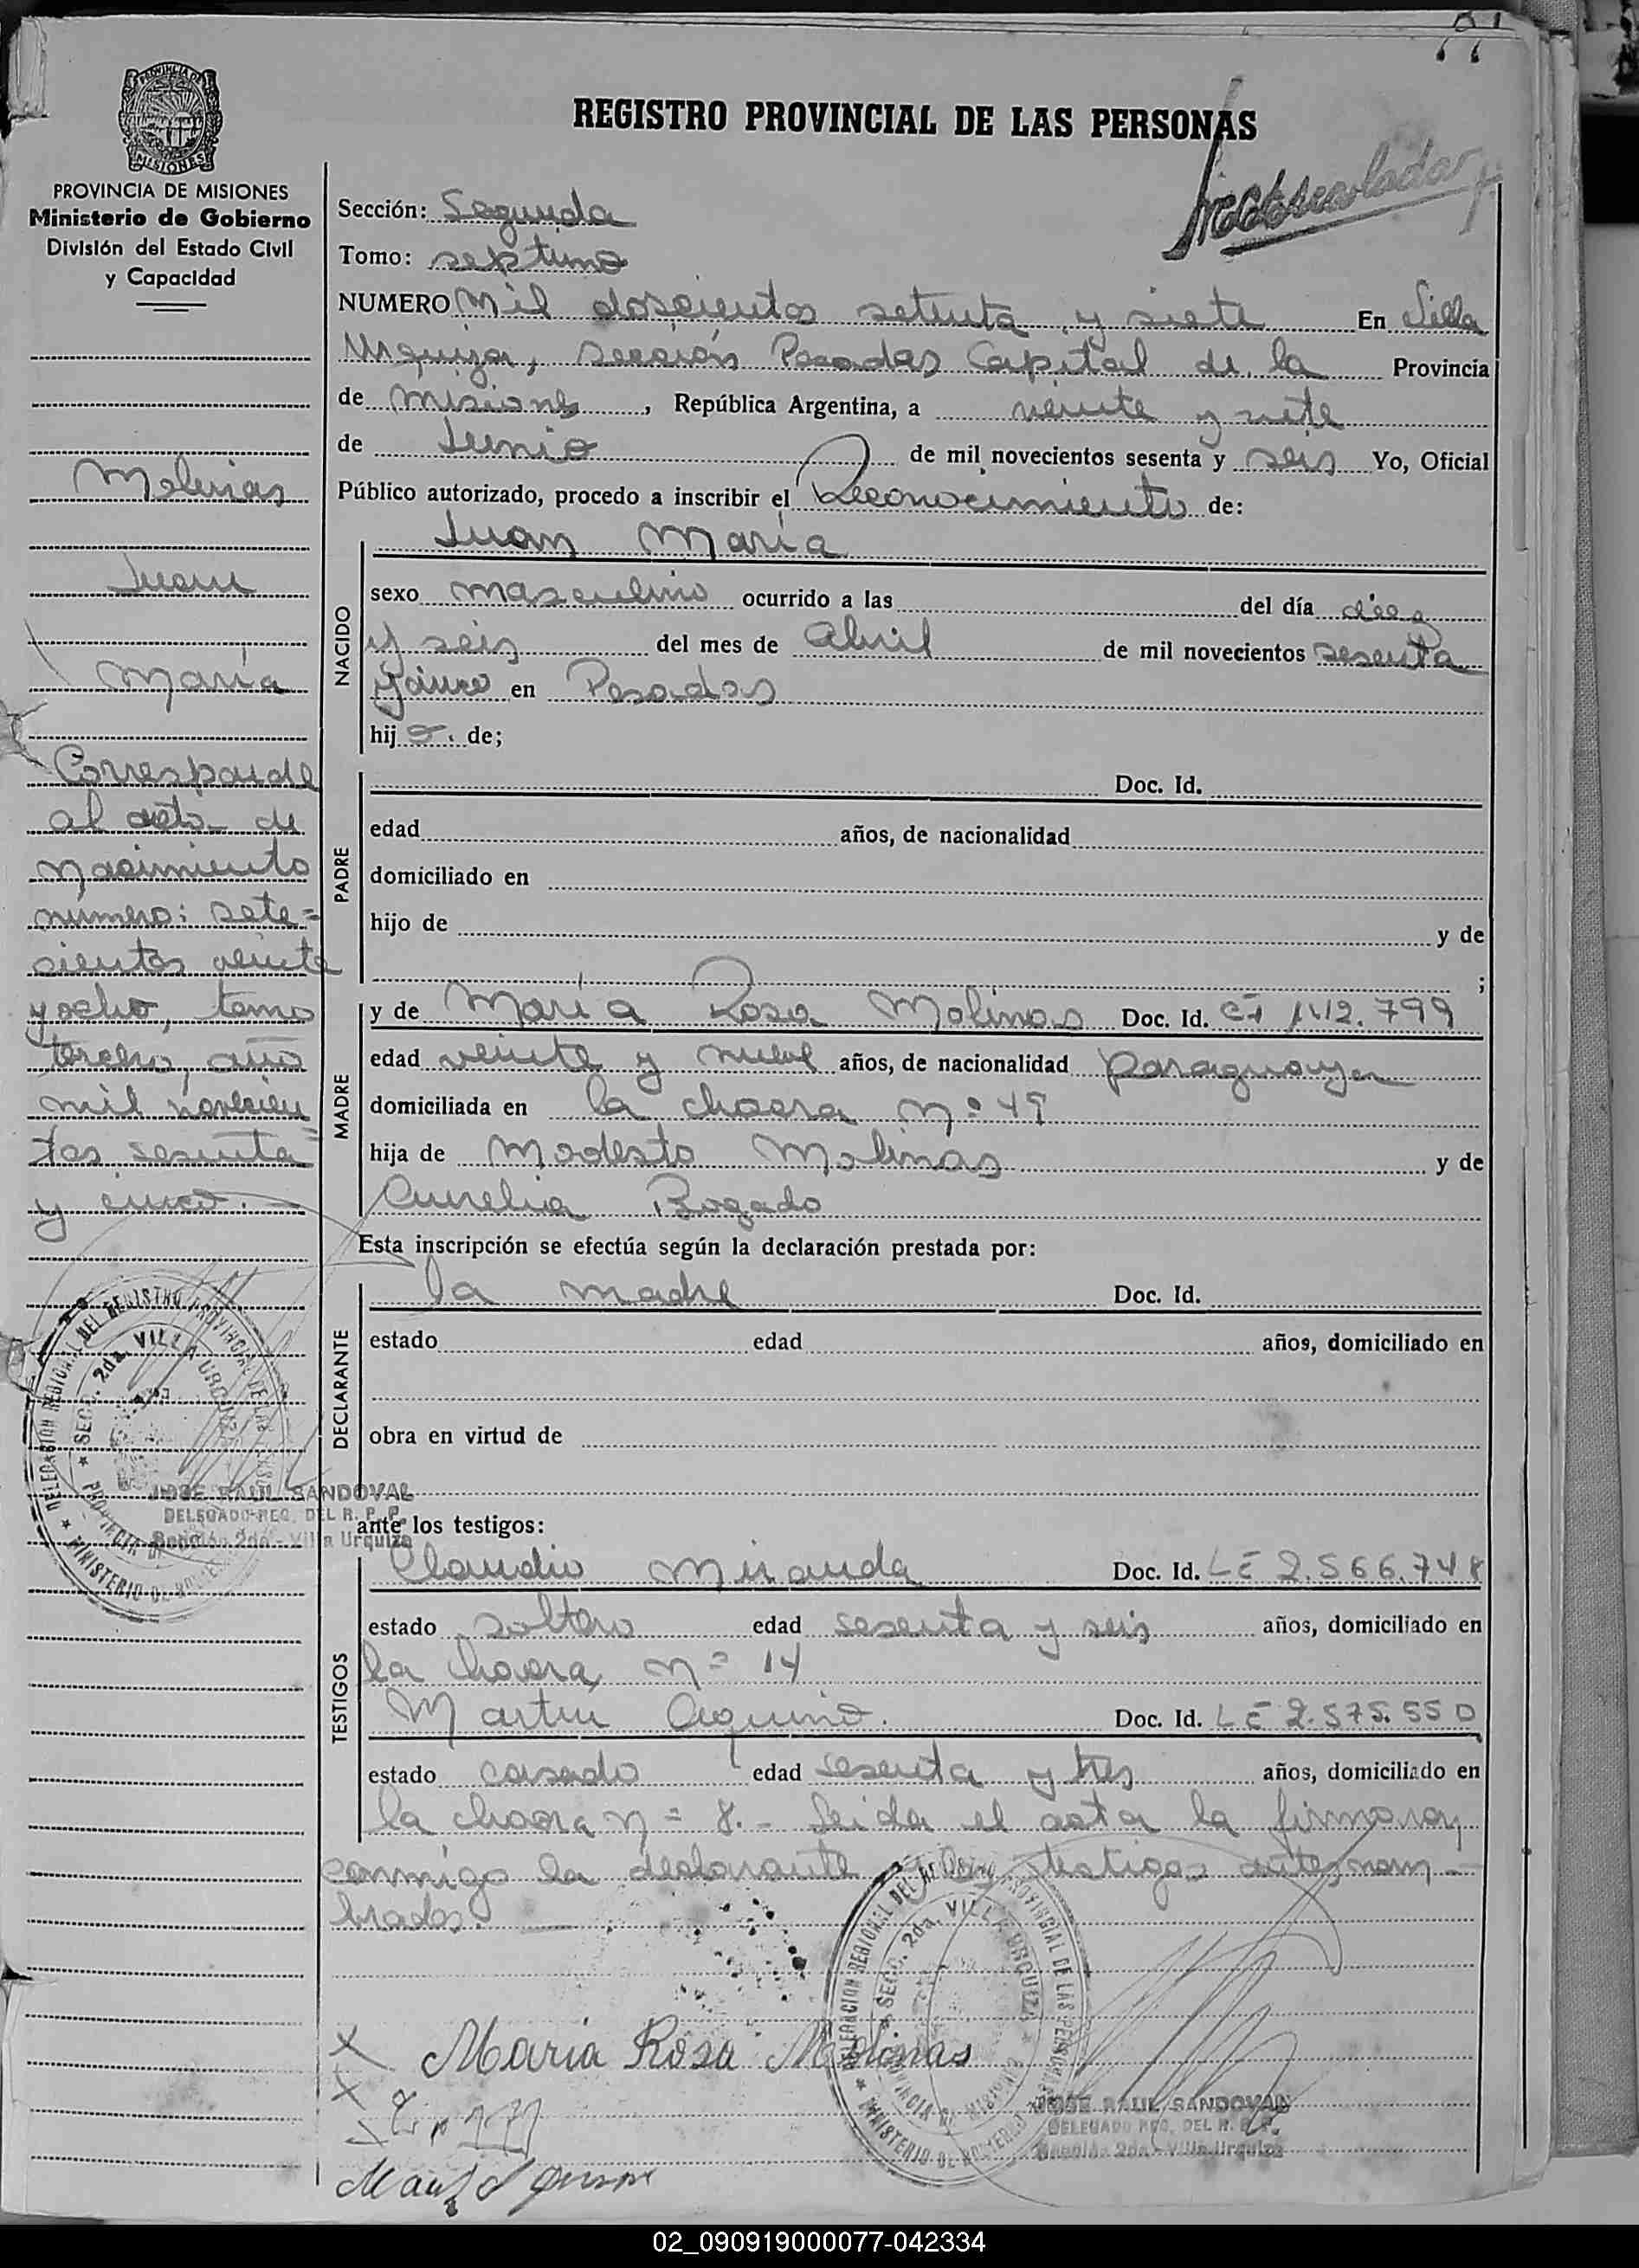 REGISTRO PROVINCIAL DE LAS PERSONAS
PROVINCIA DE MISIONES
Ministerio de Gobierno
División del Estado Civil
y Capacidad
Molinas
Juan
María
Corresponde
al acta de
nacimiento
número: sete=
cientos veinte
y ocho, tomo
tercero, año
mil novecien=
tos sesenta
y cinco.
DELEGACION REGIONAL DEL REGISTRO PROVINCIAL DE LAS PERSONAS
SECC. 2da. VILLA URQUIZA
PROVINCIA DE MISIONES
MINISTERIO DE GOBIERNO
JOSE RAUL SANDOVAL
DELEGADO REG. DEL R. P. P.
Sección 2da - Villa Urquiza
Sección: Segunda
Tomo: septimo
NUMERO Mil doscientos setenta y siete En Villa
Urquiza, sección Posadas Capital de la Provincia
de Misiones, República Argentina, a veinte y siete
de Junio de mil novecientos sesenta y seis Yo, Oficial
Público autorizado, procedo a inscribir el Reconocimiento de:
Juan María
NACIDO
sexo masculino ocurrido a las del día diez
y seis del mes de Abril de mil novecientos sesenta
y cinco en Posadas
hijo. de;
PADRE
Doc. Id.
edad años, de nacionalidad
domiciliado en
hijo de y de
;
MADRE
y de María Rosa Molinas Doc. Id. 799
edad veinte y nueve años, de nacionalidad paraguaya
domiciliada en la chacra nº 49
hija de Modesto Molinas y de
Aurelia Bogado
Esta inscripción se efectúa según la declaración prestada por:
DECLARANTE
la madre Doc. Id.
estado edad años, domiciliado en
obra en virtud de
ante los testigos:
TESTIGOS
Claudio Miranda Doc. Id. LE 2.566.748
estado soltero edad sesenta y seis años, domiciliado en
la chacra nº 14
Martín Aquino. Doc. Id. LE 2.575.550
estado casado edad sesenta y tres años, domiciliado en
la chacra nº 8.- Leida el acta la firmaron
conmigo la declarante y los testigos antes nom-
brados.
María Rosa Molinas
DELEGACION REGIONAL DEL REGISTRO PROVINCIAL DE LAS PERSONAS
SECC. 2da. VILLA URQUIZA
PROVINCIA DE MISIONES
MINISTERIO DE GOBIERNO
JOSE RAUL SANDOVAL
DELEGADO REG. DEL R. P. P.
Sección 2da - Villa Urquiza
02_090919000077-042334